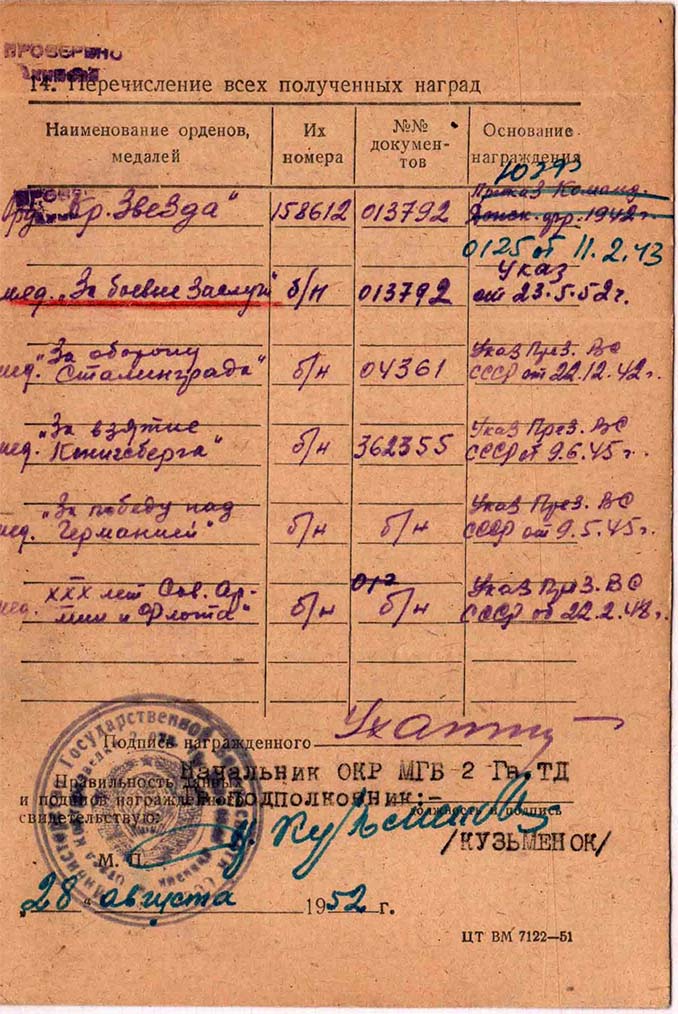 ПРОВЕРЕНО
14. Перечисление всех полученных наград
Наименование орденов, медалей
Их номера
№№ документов
Основание награждения
Орд. „Кр. Звезда" 158612 013792 Приказ Команд.
Донск. фр. 1942 г
0125 от 11.2.43
мед. „За боевые Заслуги" б/н 013792 Указ
от 23.5.52 г.
мед. „За оборону
Сталинграда" б/н 04361 Указ През. ВС
СССР от 22.12.42 г.
мед. „За взятие
Кенигсберга" б/н 362355 Указ През. ВС
СССР от 9.6.45 г.
мед. „За победу над
Германией" б/н б/н Указ През. ВС
СССР от 9.5.45 г.
мед. XXX лет Сов. Ар-
мии и Флота" б/н б/н Указ През. ВС
СССР от 22.2.48 г.
Подпись награжденного
Правильность данных
и подписи награжденного
свидетельствую:
Начальник ОКР МГБ 2 Гв.ТД
Подполковник:-
должность и подпись
/КУЗЬМЕНОК/
М. П.
„28" августа 1952 г.
ЦТ ВМ 7122—51